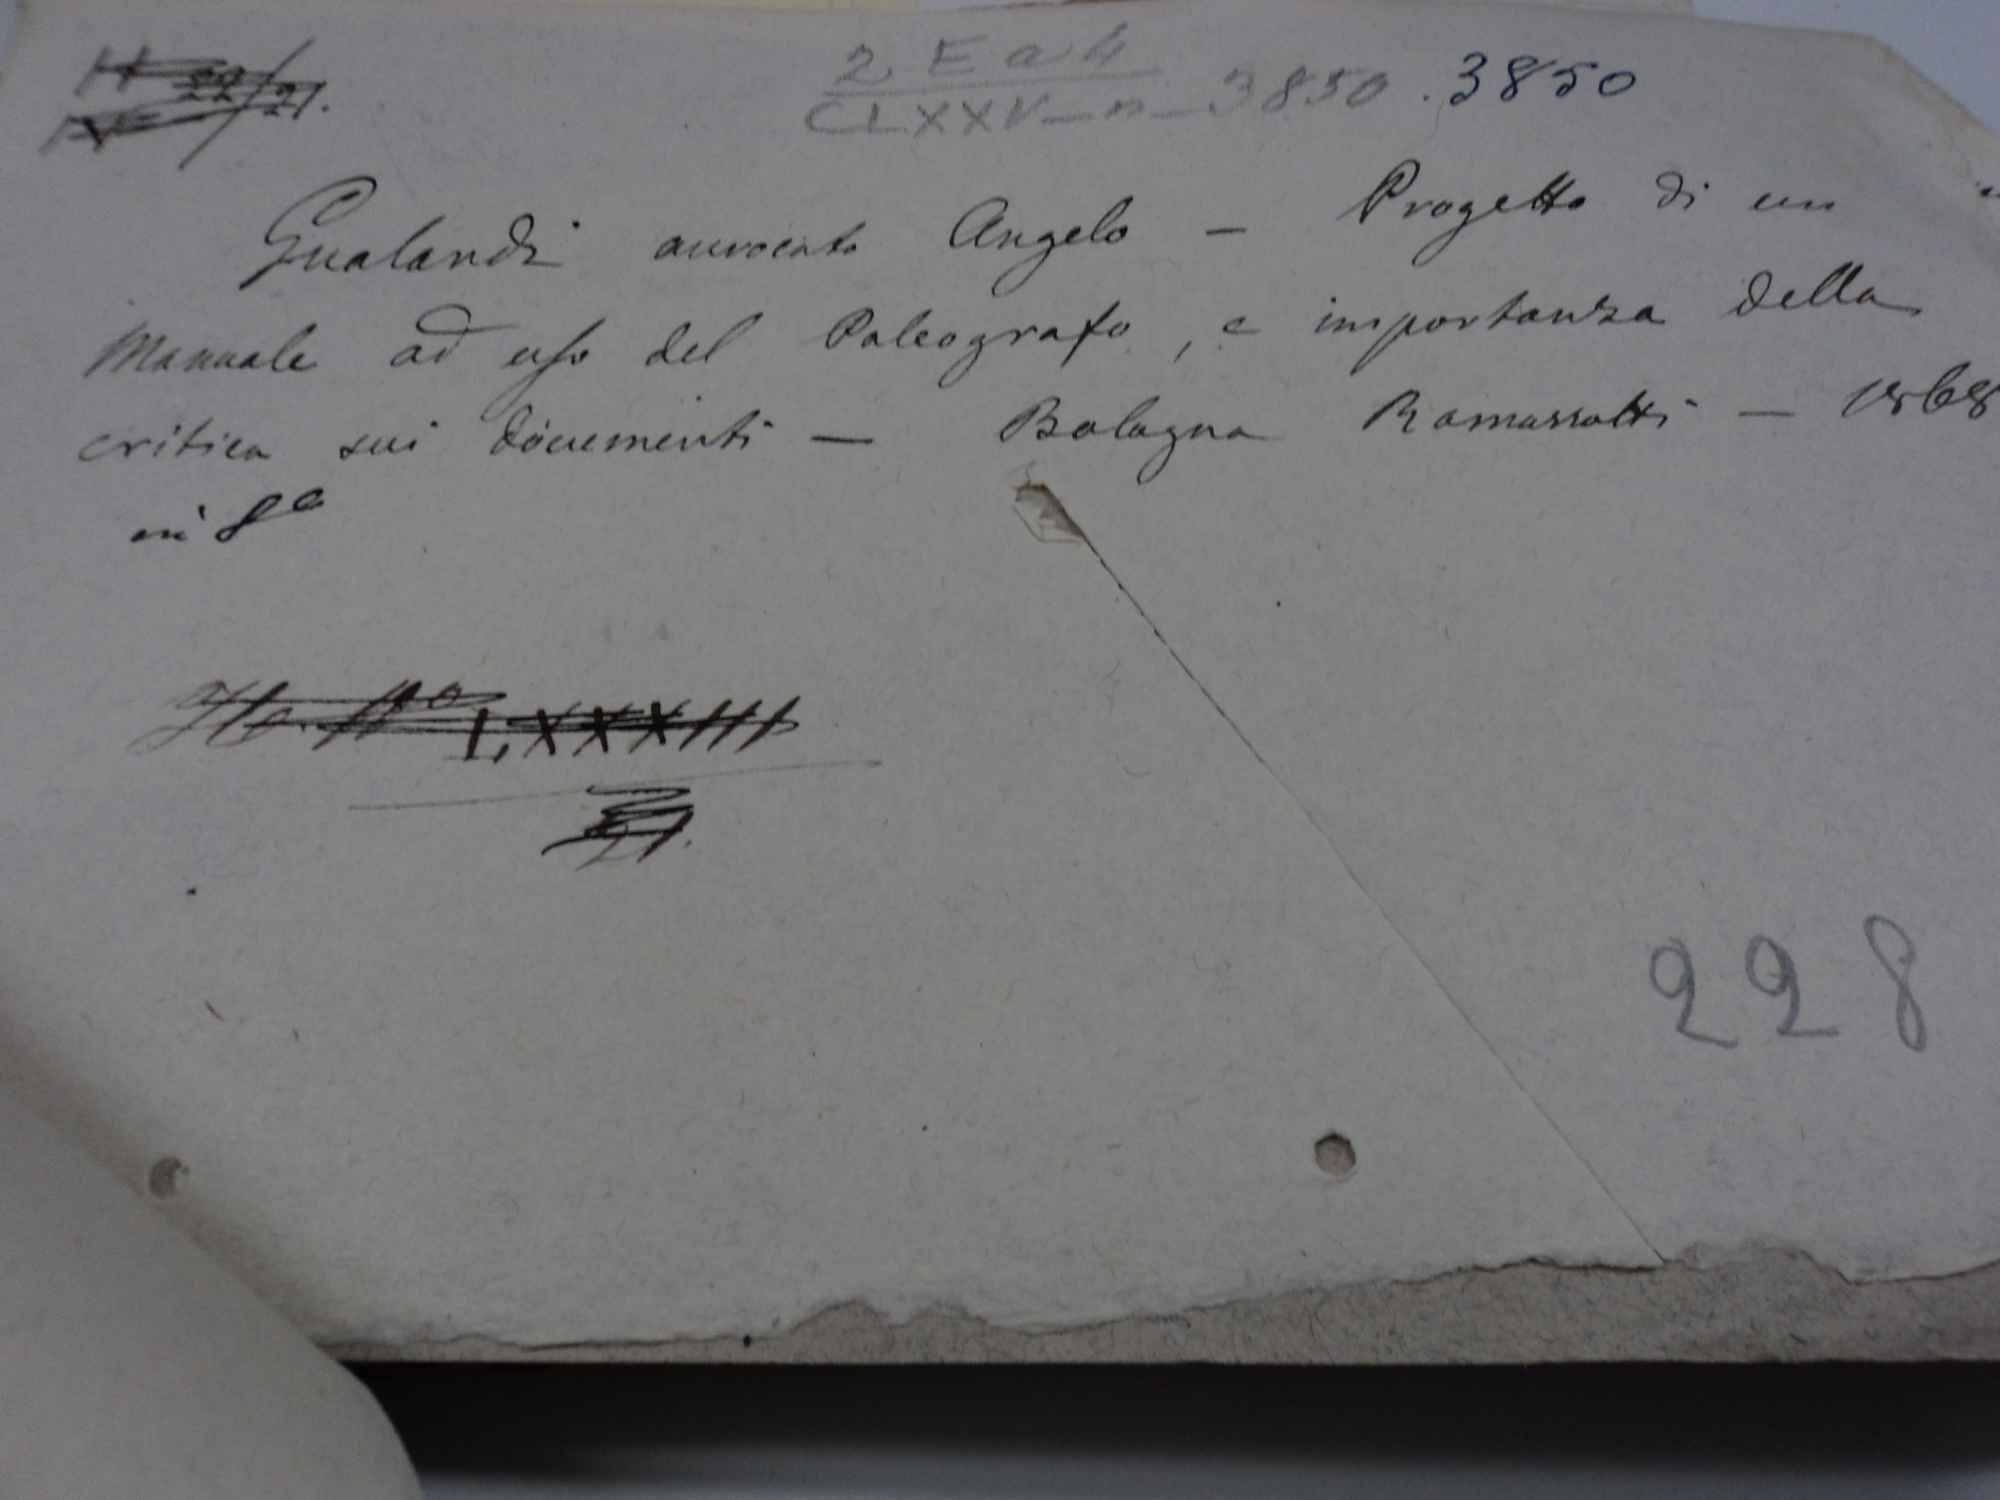 2 E a 4
CLXXV - n - 3850 . 3850
Gualandi avvocato Angelo - Progetto di un
Manuale ad uso del Paleografo, e importanza della
critica sui documenti - Bologna Ramazzotti - 1868
in 8º
LXXXIII
228